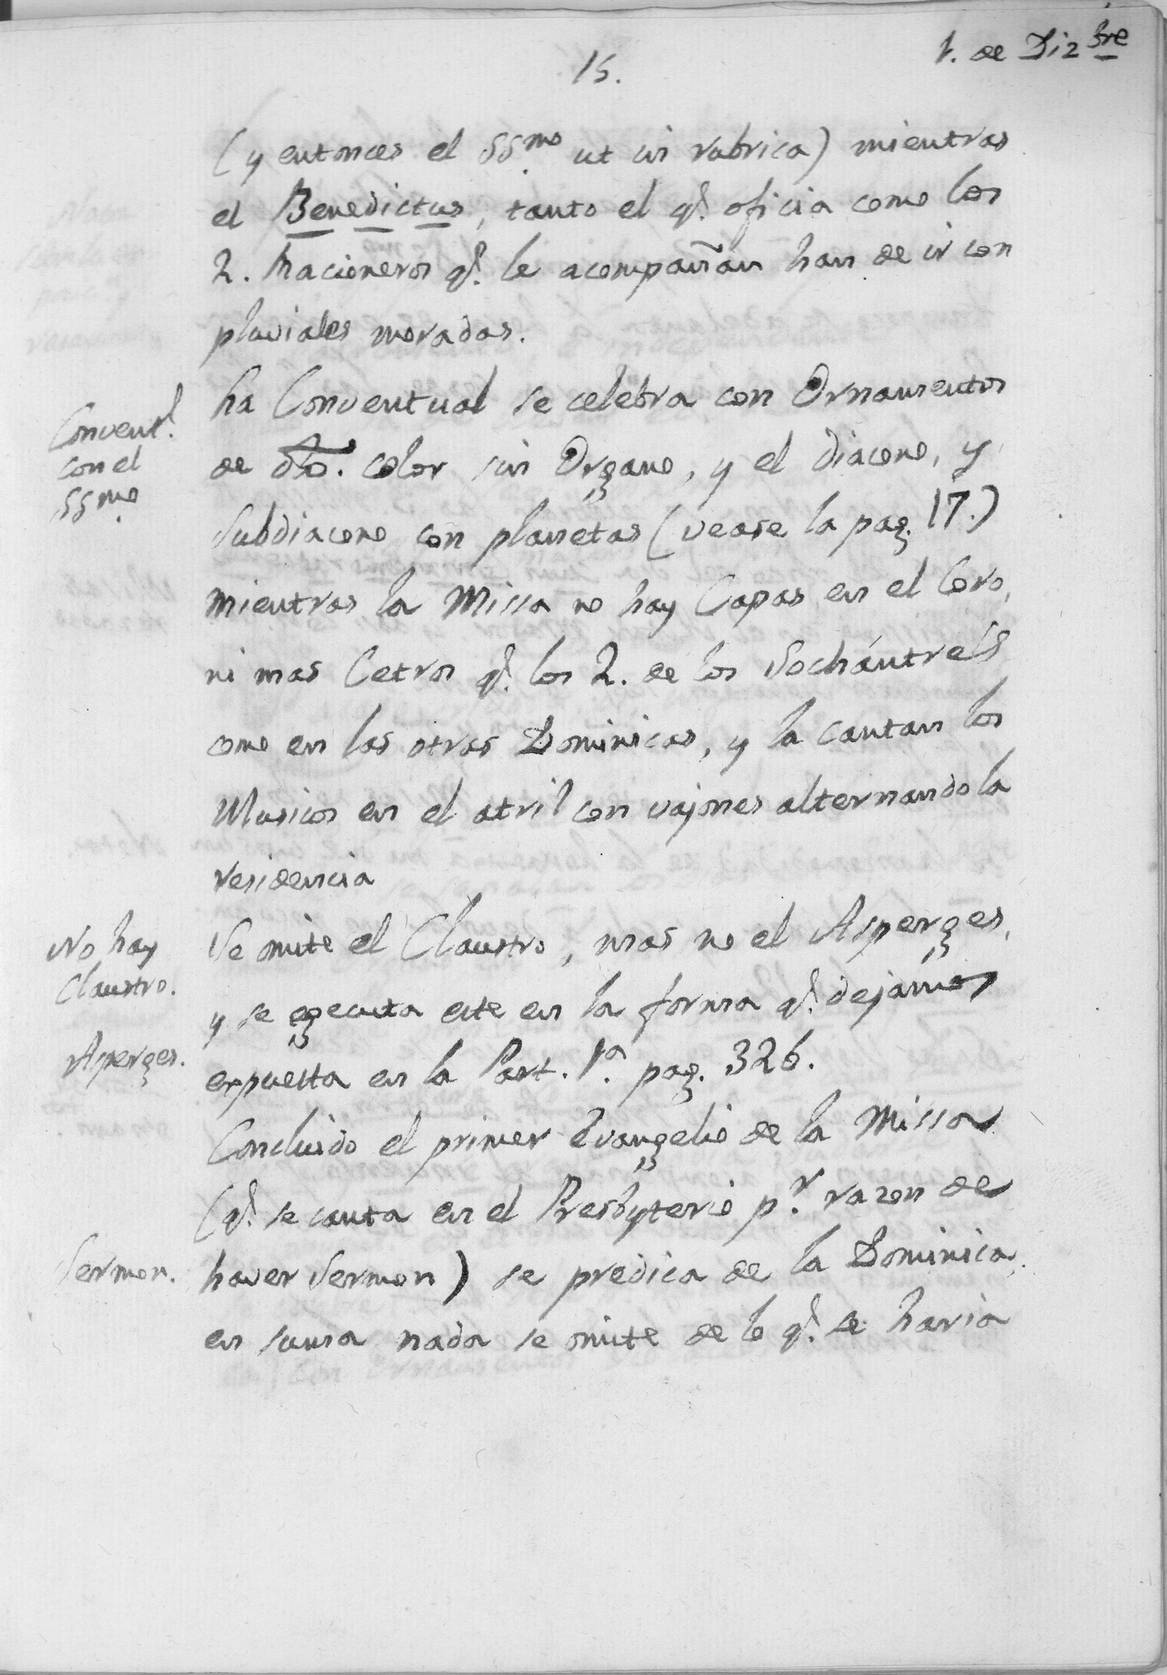 15.
1. de Diz.bre
(y entonces el SSmo. ut in rubrica) mientras
el Benedictus, tanto el q.e oficia como los
2. Racioneros q.e le acompañan han de ir con
pluviales moradas.
Convent.l
con el
SSmo.
La Conventual se celebra con Ornamentos
de dho. color sin Organo, y el Diacono, y
Subdiacono con planetas (vease la pag. 17.)
mientras la Missa no hay Capas en el Coro,
ni mas Cetros q.e los 2. de los Sochántres
como en las otras Dominicas, y la cantan los
Musicos en el atril con vajones alternando la
residencia
No hay
Claustro.
Se omite el Claustro, mas no el Asperges,
y se egecuta este en la forma q.e dejamos
Asperges.
expuesta en la Part. 1.a pag. 326.
Concluido el primer Evangelio de la Missa
(q.e se canta en el Presbyterio p.r razon de
Sermon.
haver Sermon) se predica de la Dominica,
en suma nada se omite de lo q.e se haria